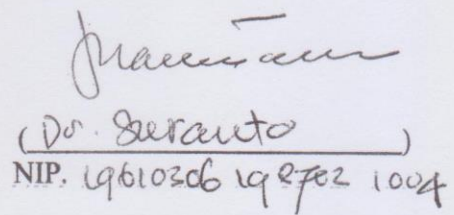 (Dr. Suranto)
NIP. 19610306 198702 1004